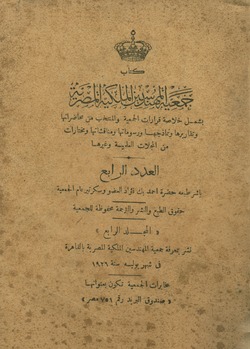 كتاب
جمعية المهندسين الملكية المصرية
يشمل خلاصة قرارات الجمعية والمنتخب من محاضراتها
وتقاريرها ونماذجها ورسوماتها ومناقشاتها ومختارات
من المجلات العلمية وغيرها
العدد الرابع
باشر طبعه حضرة احمد بك فؤاد العضو وسكرتير عام الجمعية
حقوق الطبع والنشر والترجمة محفوظة للجمعية
« المجلد الرابع »
نشر بمعرفة جمعية المهندسين الملكية المصرية بالقاهرة
في شهر يوليه سنة ١٩٢٦
مخابرات الجمعية تكون بعنوانها
« صندوق البريد رقم ٧٥١ مصر »